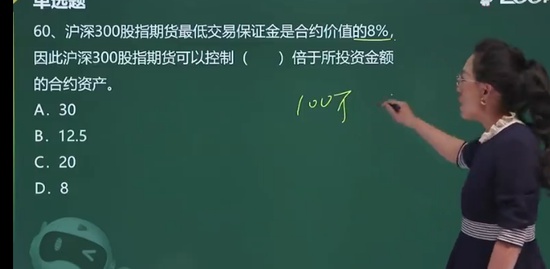 单选题
60、沪深300股指期货最低交易保证金是合约价值的8%,
因此沪深300股指期货可以控制（ ）倍于所投资金额
的合约资产。
100万
A. 30
B. 12.5
C. 20
D. 8